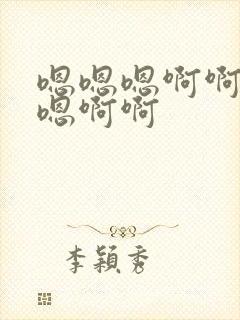 嗯嗯嗯啊啊
嗯啊啊
李穎秀